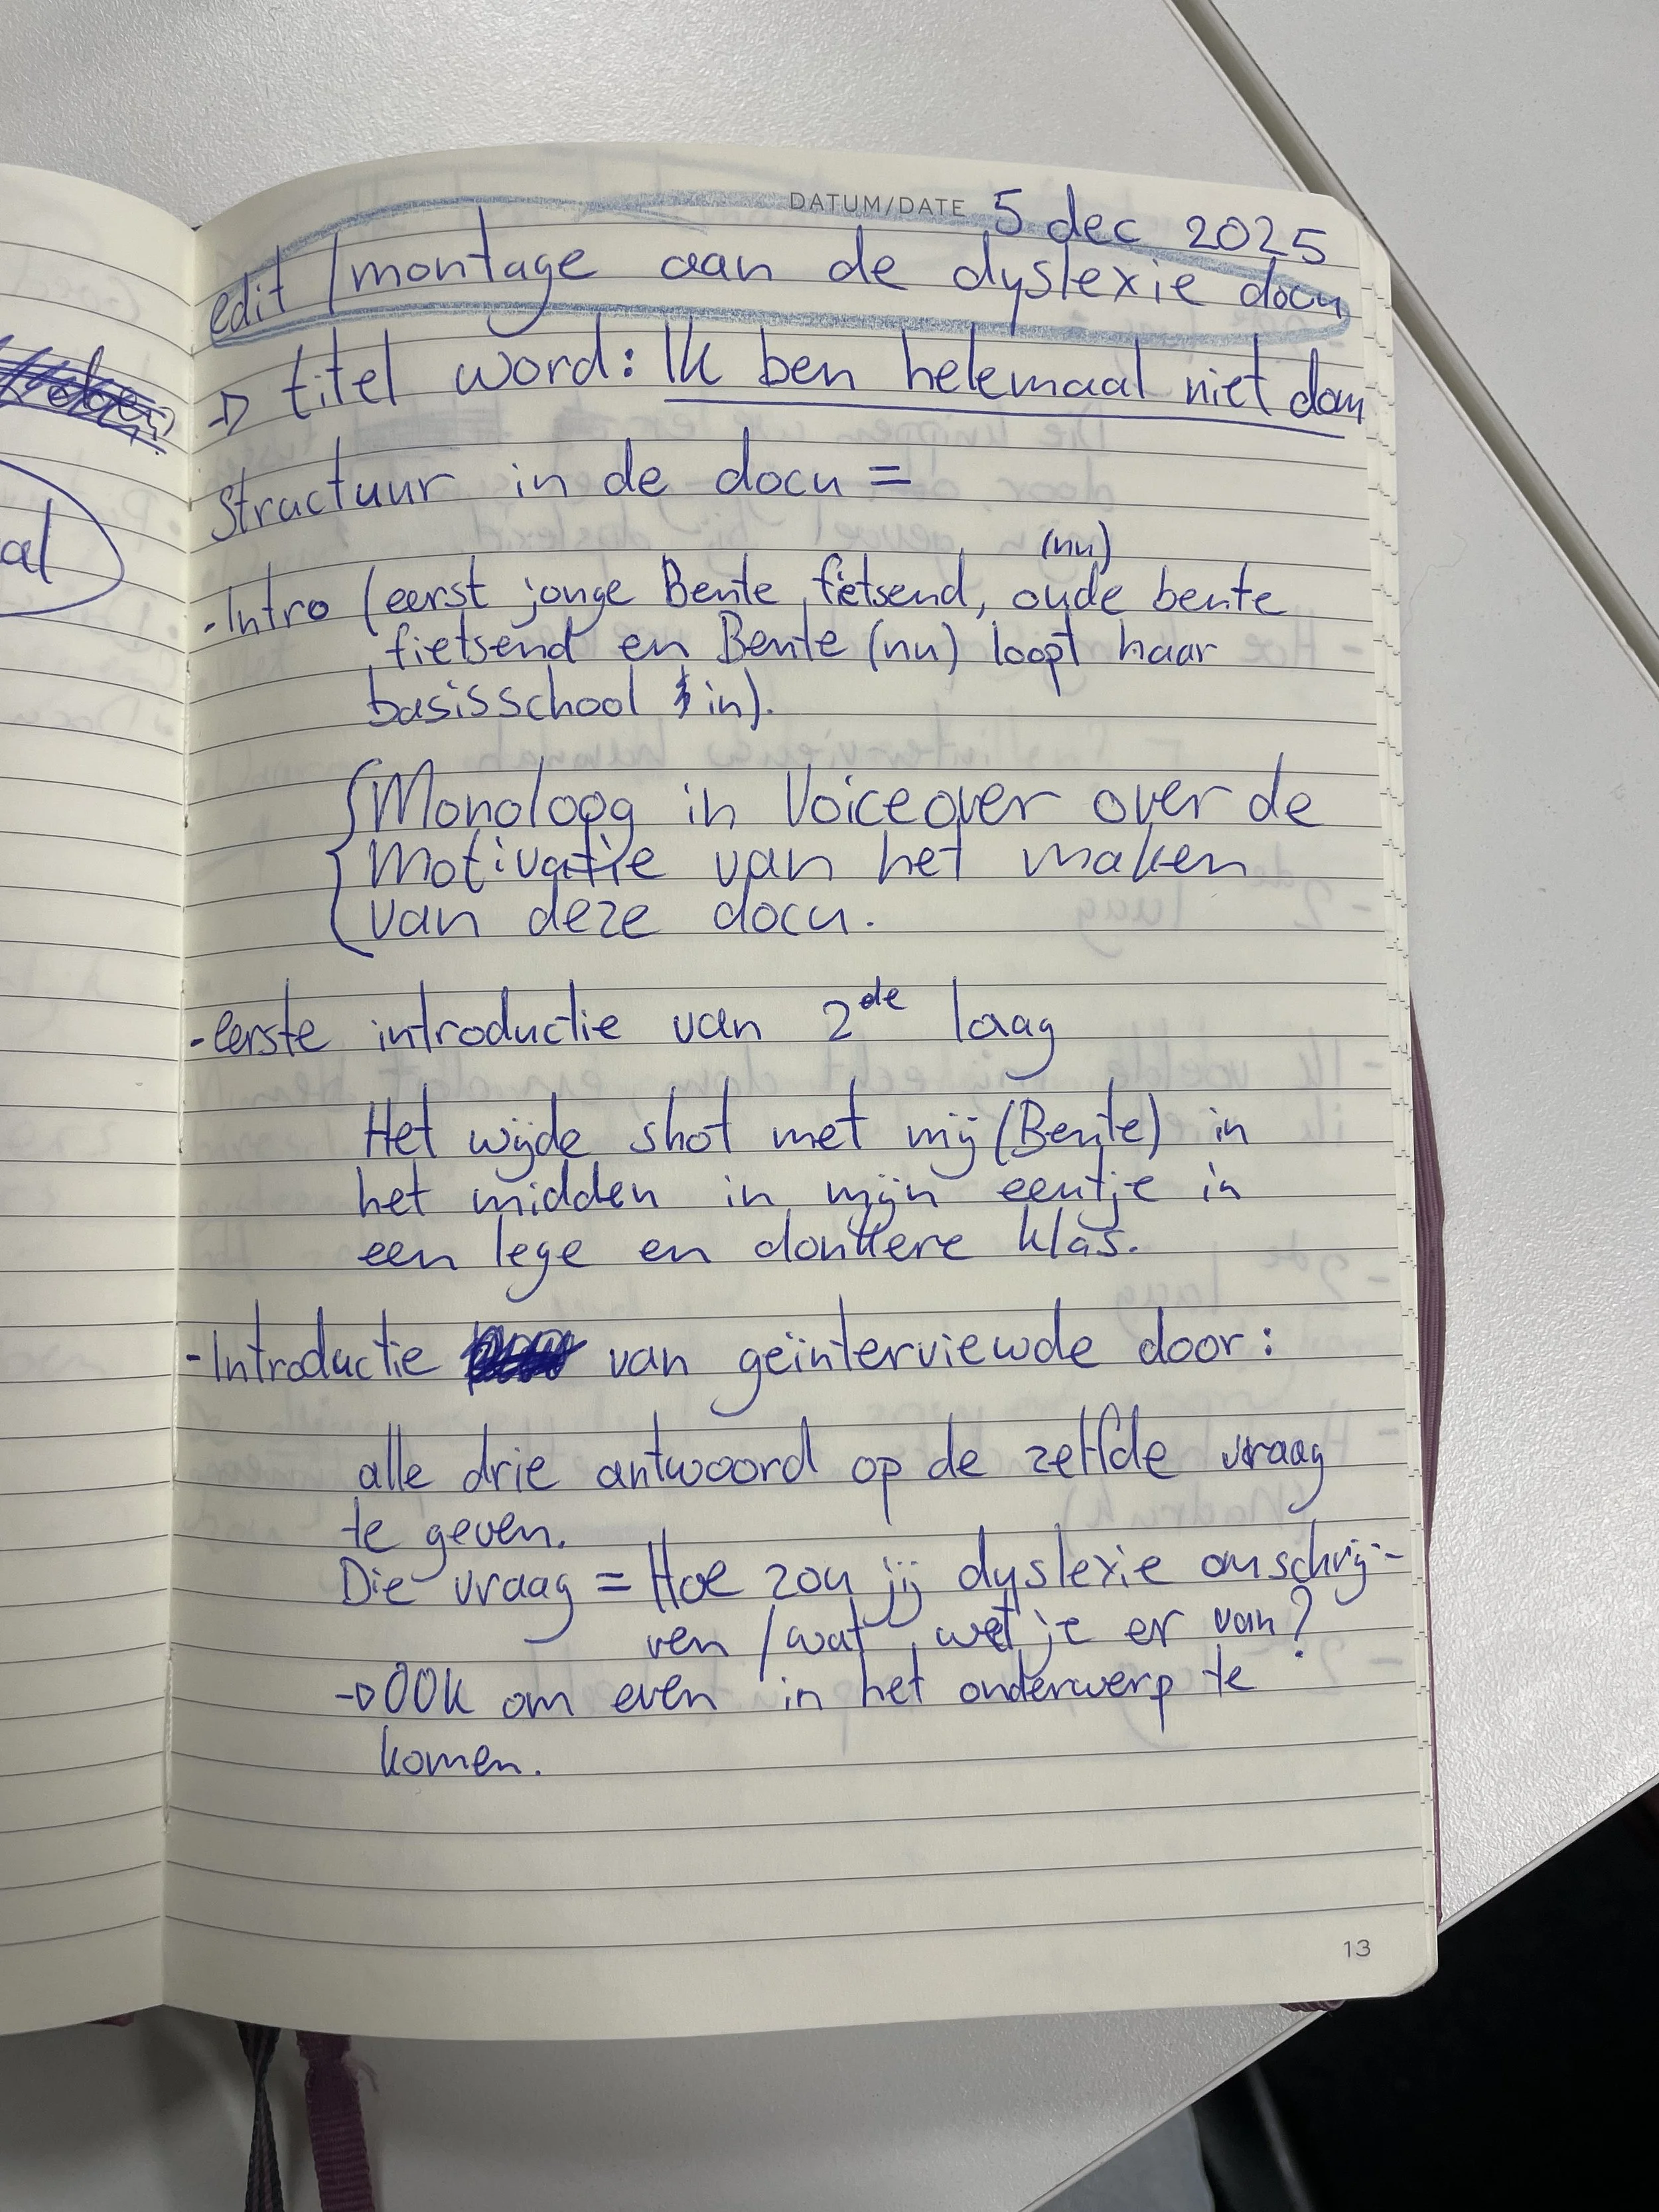 al
DATUM/DATE 5 dec 2025
edit / montage aan de dyslexie docu
→ titel word: Ik ben helemaal niet dom
Structuur in de docu =
(nu)
- Intro (eerst jonge Bente fietsend, oude bente
fietsend en Bente (nu) loopt haar
basisschool in).
Monoloog in Voiceover over de
Motivatie van het maken
van deze docu.
- eerste introductie van 2de laag
Het wijde shot met mij (Bente) in
het midden in mijn eentje in
een lege en donkere klas.
- Introductie van geïnterviewde door:
alle drie antwoord op de zelfde vraag
te geven.
Die vraag = Hoe zou jij dyslexie omschrij-
ven / wat wet je er van?
→ OOK om even in het onderwerp te
komen.
13